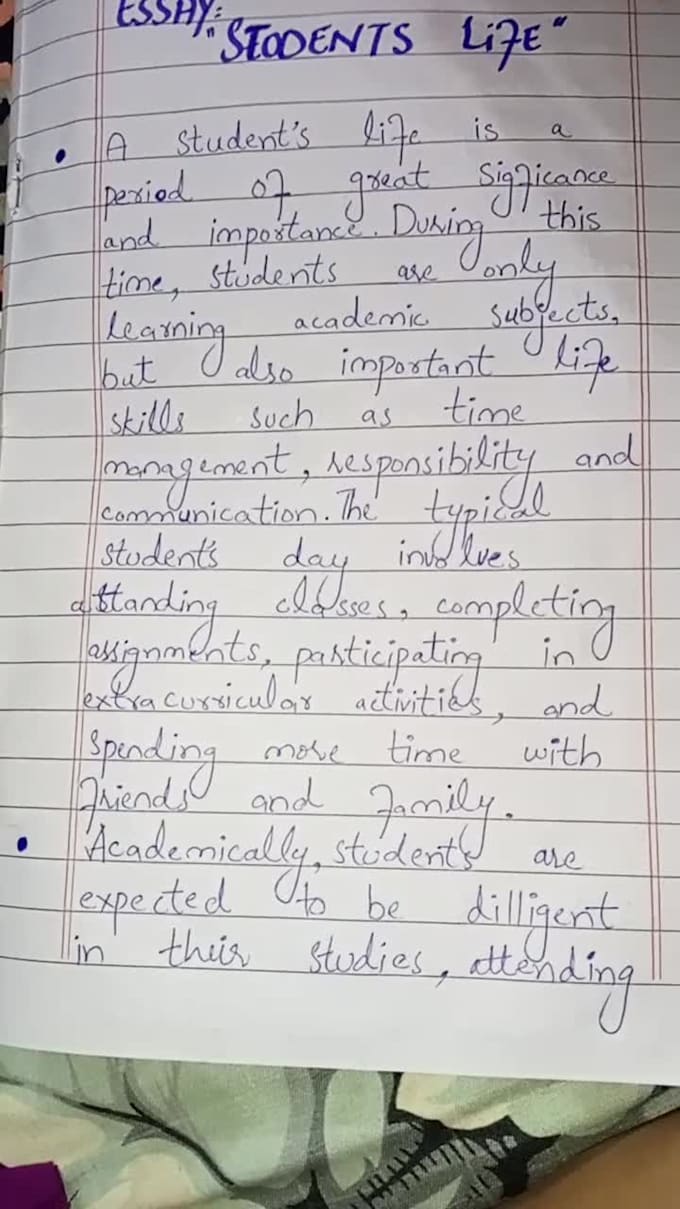 ESSAY:
"STUDENTS LiFE"
A student's life is a
period of great Significance
and importance. During this
time, students are only
learning academic subjects,
but also important life
skills such as time
management, responsibility and
communication. The typical
student's day involves
attanding classes, completing
assignments, participating in
extracurricular activities, and
spending more time with
friends and family.
Academically, student's are
expected to be dilligent
in their studies, attending